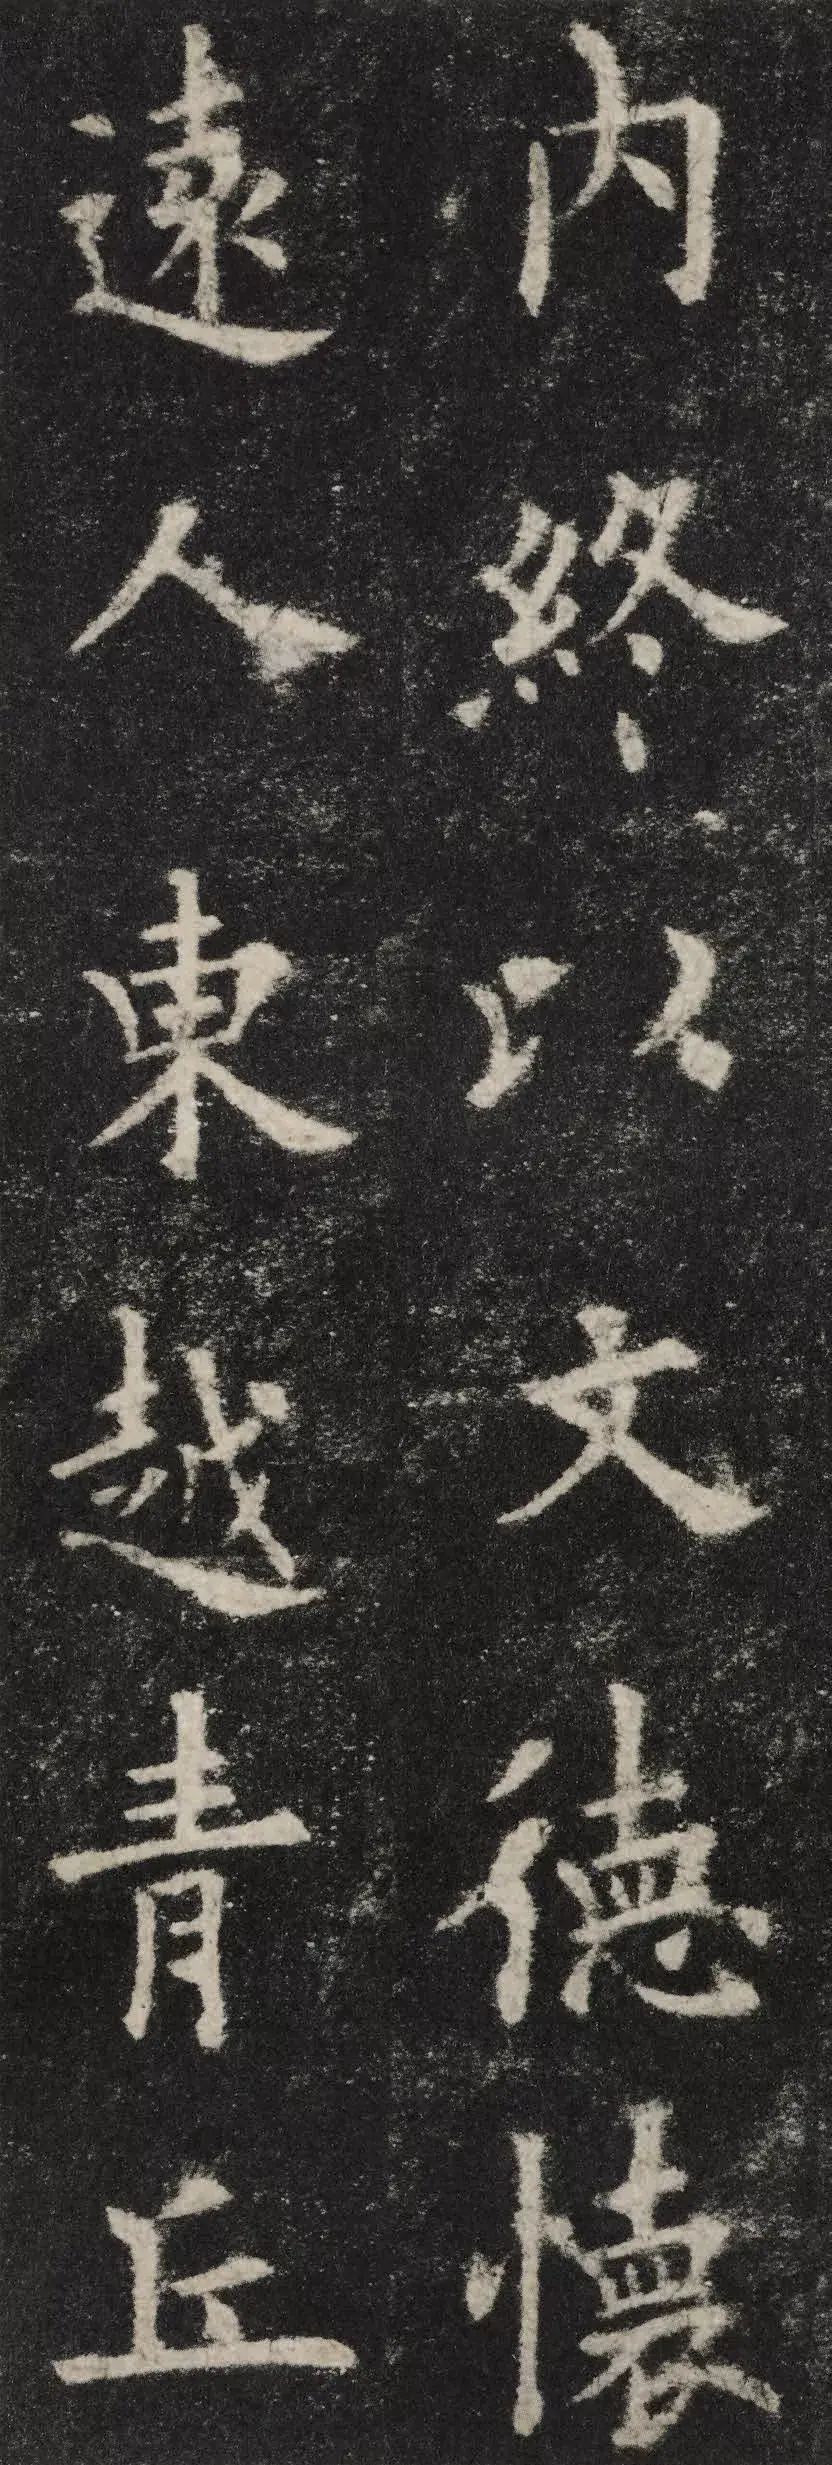 内終以文德懷
遠人東越青丘